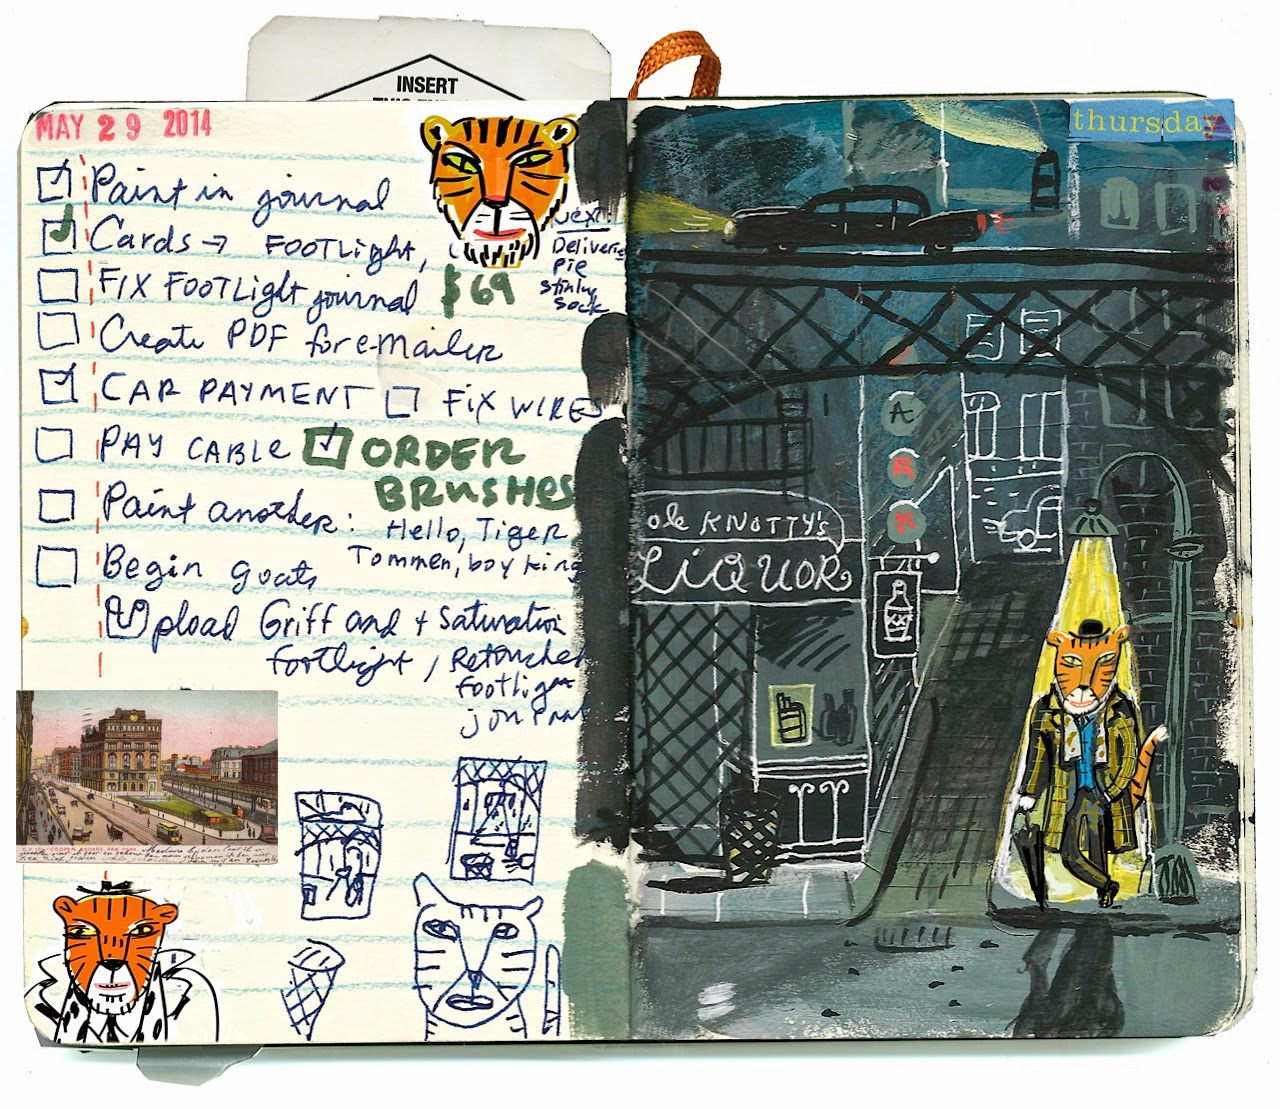 INSERT
MAY 29 2014
thursday
Paint in journal
Cards → FOOTLight,
Next:
Deliveries
Pie
Sock
FIX FOOTLight journal
$69
Create PDF for e-mailer
CAR PAYMENT FIX WIRES
PAY CABLE ORDER
BRUSHES
Paint another: Hello, Tiger
Tommen, boy king
Begin goats
Upload Griff and + Saturation
footlight, Retouched
footlight
journal
COOPER SQUARE, NEW YORK
P
A
R
K
ole KNOTTY's
LIQUOR
XX